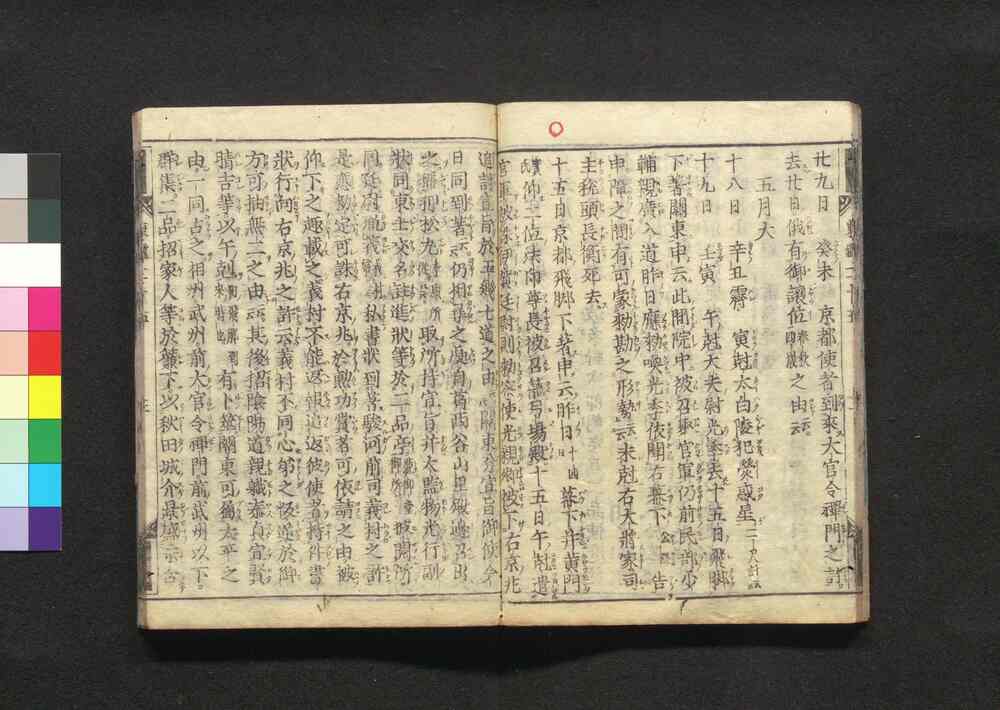 廿九日　癸未　京都使者到來大官令禪門之許
去廿日俄有御讓位之由云云
五月大
十八日　辛丑霽　寅尅太白陵犯熒惑星
十九日　壬寅　午尅大夫尉光季去十五日飛脚
下著關東申云此間院中被召聚官軍仍前民部少
輔親廣入道昨日應勅喚光季依聞右幕下公經告
申障之間有可蒙勅勘之形勢云云未尅右大將家司
主税頭長衡死去
十五日京都飛脚下著申云昨日十四日幕下并黄門
實氏仰二位法印尊長被召籠弓場殿十五日午尅遣
官軍被誅伊賀廷尉則勅按察使光親卿被下右京兆
追討宣旨於五畿七道之由云云關東分宣旨御使今
日同到著云云仍相尋之處自葛西谷山里殿邊召出
之稱押松丸取所持宣旨并大監物光行副
狀同東士交名註進狀等於二品亭披閲所
同廷尉胤義私書狀到著駿河前司義村之許
是應勅定可誅右京兆於勲功賞者可依請之由被
仰下之趣載之義村不能返報追返彼使者持件書
狀行向右京兆之許云義村不同心弟之叛逆於御
方可抽無二之由云云其後招陰陽道親職泰貞宣賢
晴吉等以午尅有卜筮關東可屬太平之
由一同占之相州武州前大官令禪門前武州以下
群集二品招家人等於簾下以秋田城介景盛示含